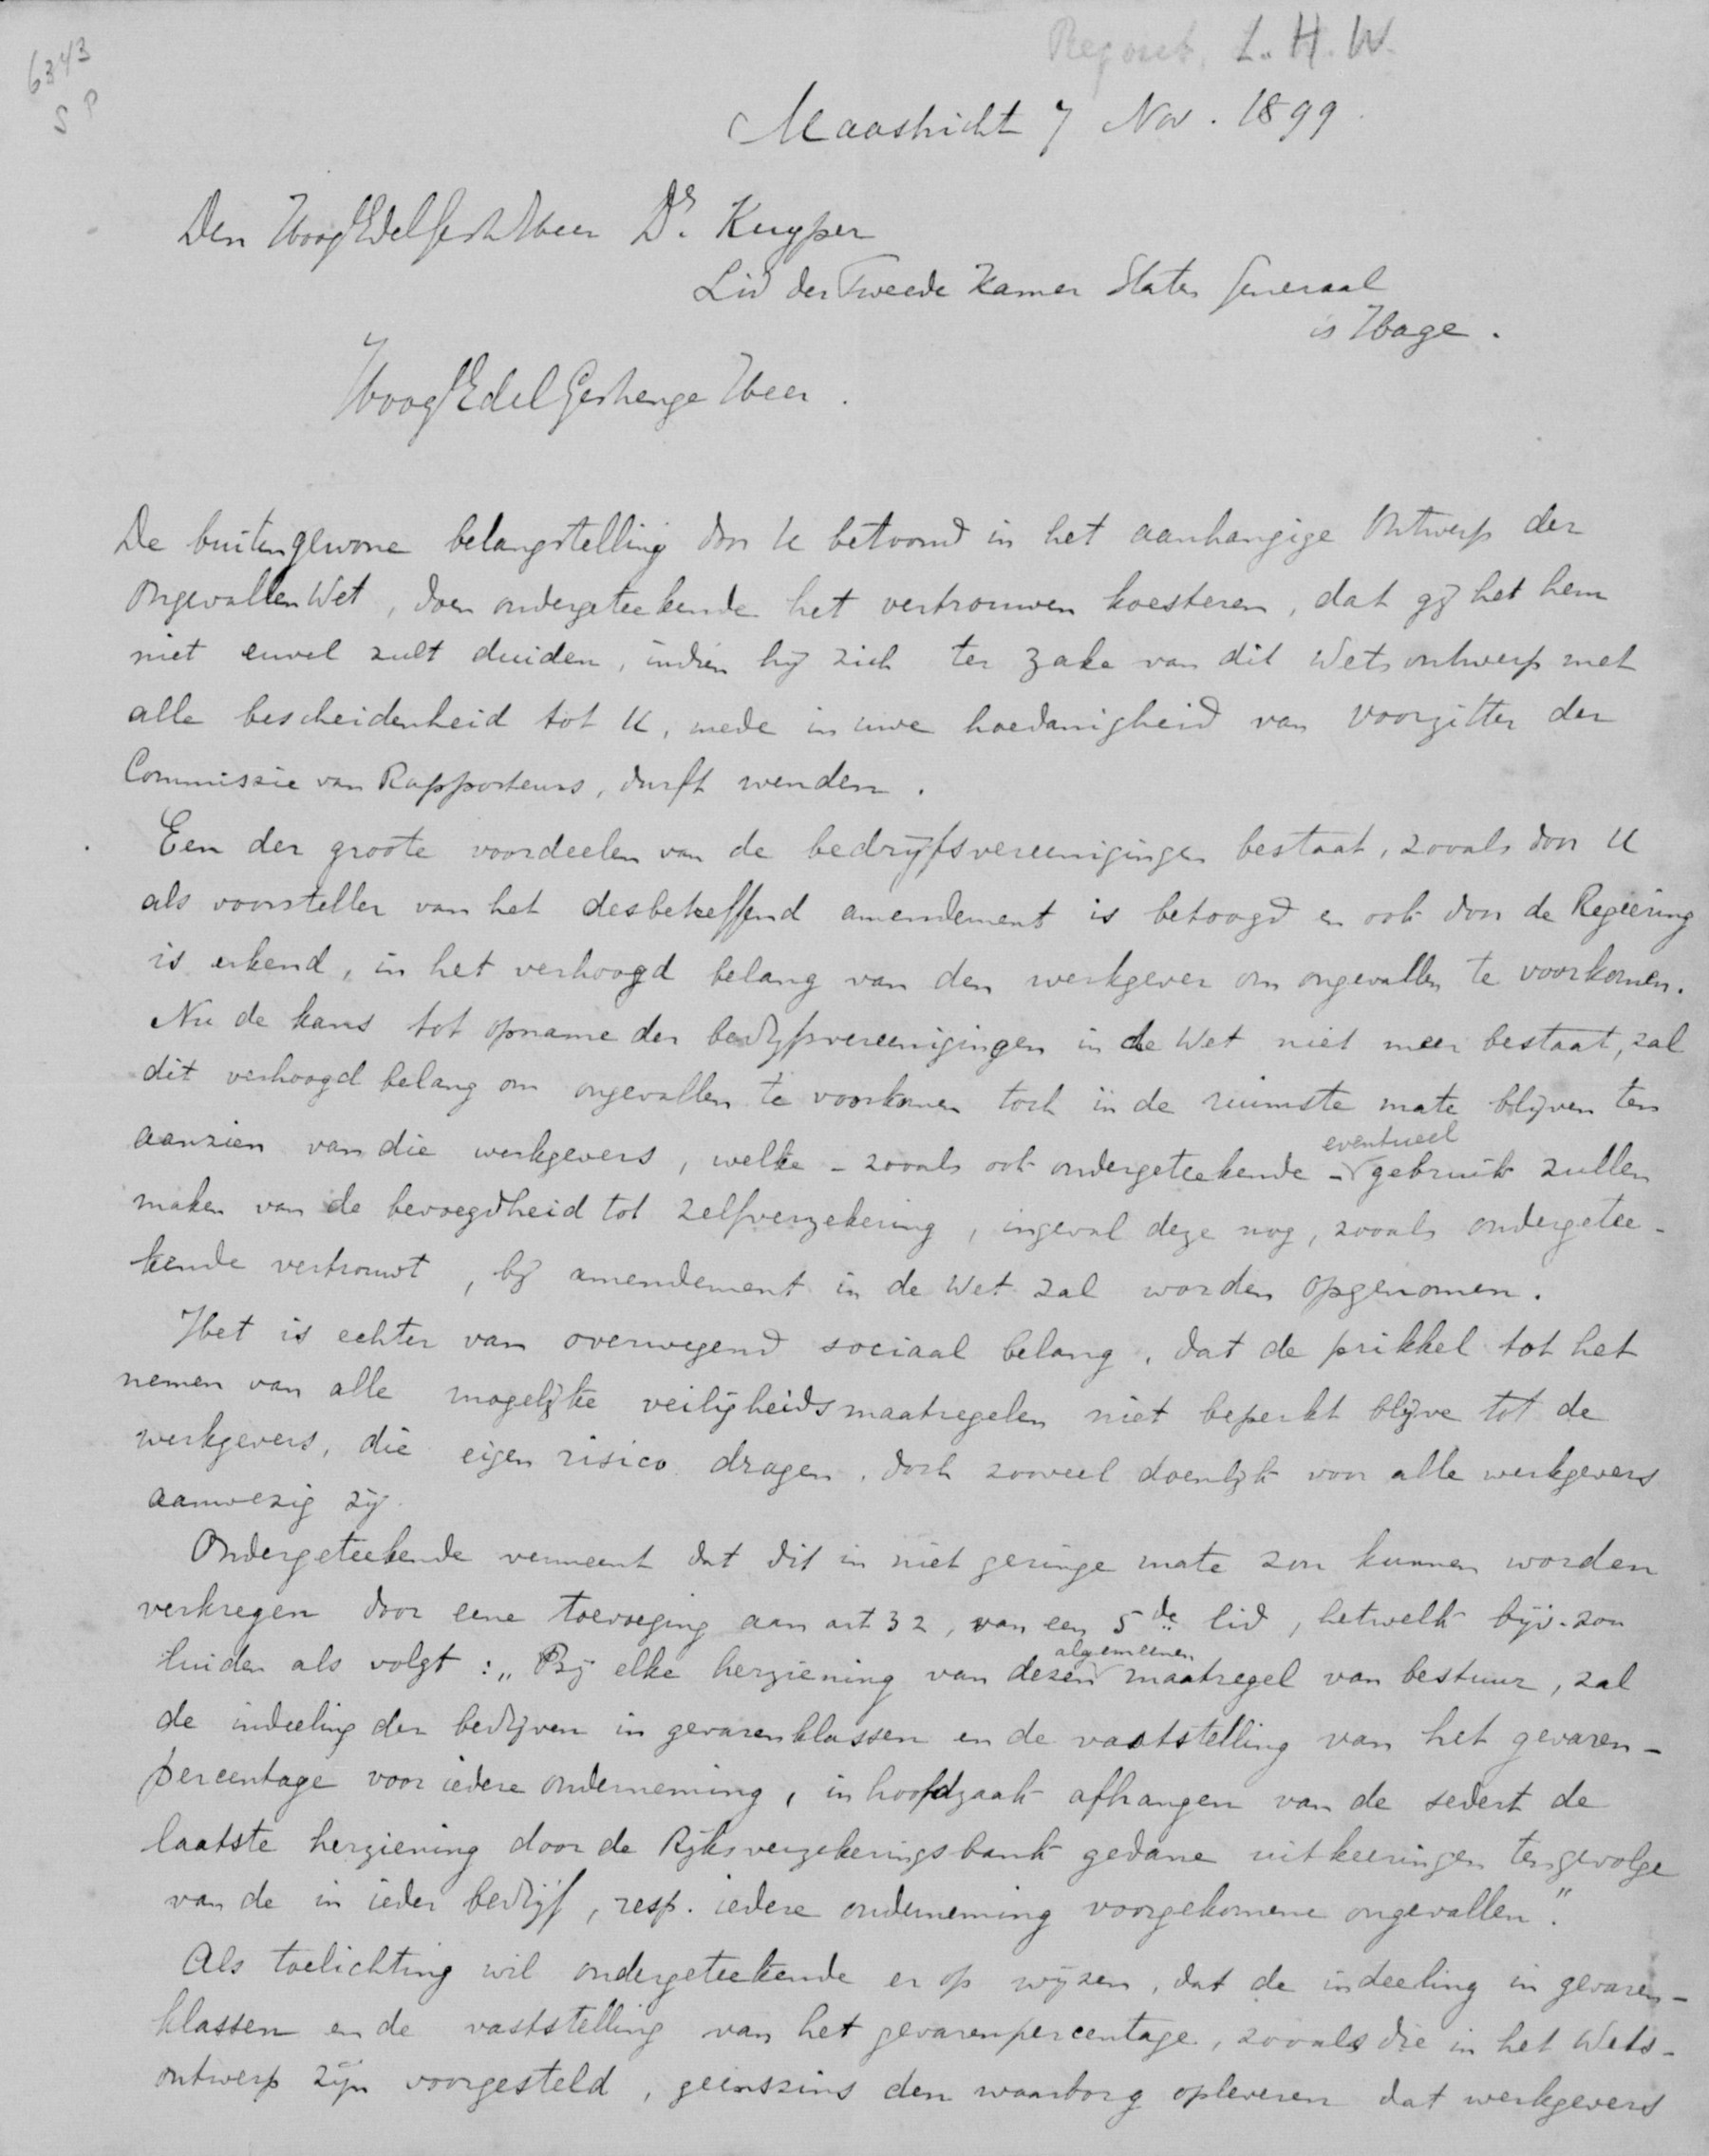 6343
S P
Regout. L. H. W.
Maastricht 7 Nov. 1899.
Den HoogEdelGestr Heer Dr. Kuyper
Lid der Tweede Kamer Staten Generaal
is Hage.
HoogEdelGestrenge Heer.
De buitengewone belangstelling door U betoond in het aanhangige Ontwerp der
OngevallenWet, doen ondergeteekende het vertrouwen koesteren, dat gij het hem
niet euvel zult duiden, indien hij zich ter zake van dit Wetsontwerp met
alle bescheidenheid tot U, mede in uwe hoedanigheid van Voorzitter der
Commissie van Rapporteurs, durft wenden.
Een der groote voordeelen van de bedrijfsvereenigingen bestaat, zooals door U
als voorsteller van het desbetreffend amendement is betoogd en ook door de Regeering
is erkend, in het verhoogd belang van den werkgever om ongevallen te voorkomen.
Nu de kans tot opname der bedrijfsvereenigingen in de Wet niet meer bestaat, zal
dit verhoogd belang om ongevallen te voorkomen toch in de ruimste mate blijven ten
aanzien van die werkgevers, welke - zooals ook ondergeteekende - eventueel gebruik zullen
maken van de bevoegdheid tot zelfverzekering, ingeval deze nog, zooals ondergetee-
kende vertrouwt, bij amendement in de Wet zal worden opgenomen.
Het is echter van overwegend sociaal belang, dat de prikkel tot het
nemen van alle mogelijke veiligheidsmaatregelen niet beperkt blijve tot de
werkgevers, die eigen risico dragen, doch zooveel doenlijk voor alle werkgevers
aanwezig zij.
Ondergeteekende vermeent dat dit in niet geringe mate zou kunnen worden
verkregen door eene toevoeging aan art 32, van een 5de lid, hetwelk bijv. zou
luiden als volgt: „Bij elke herziening van dezen algemeenen maatregel van bestuur, zal
de indeeling der bedrijven in gevarenklassen en de vaststelling van het gevaren-
percentage voor iedere onderneming, in hoofdzaak afhangen van de sedert de
laatste herziening door de Rijksverzekeringsbank gedane uitkeeringen tengevolge
van de in ieder bedrijf, resp. iedere onderneming voorgekomene ongevallen".
Als toelichting wil ondergeteekende er op wijzen, dat de indeeling in gevaren-
klassen en de vaststelling van het gevarenpercentage, zooals die in het Wets-
ontwerp zijn voorgesteld, geenszins den waarborg opleveren dat werkgevers